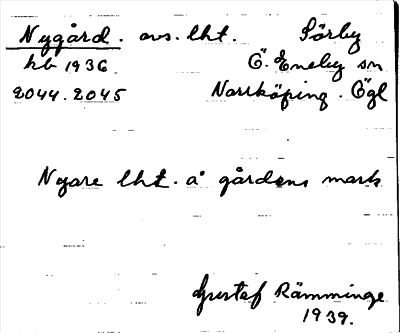 Nygård. avs. lht. Sörby
hb 1936 Ö. Eneby sn
2044.2045 Norrköping. Ögl
Nyare lht. å gårdens mark
Gustaf Rämminge
1939.